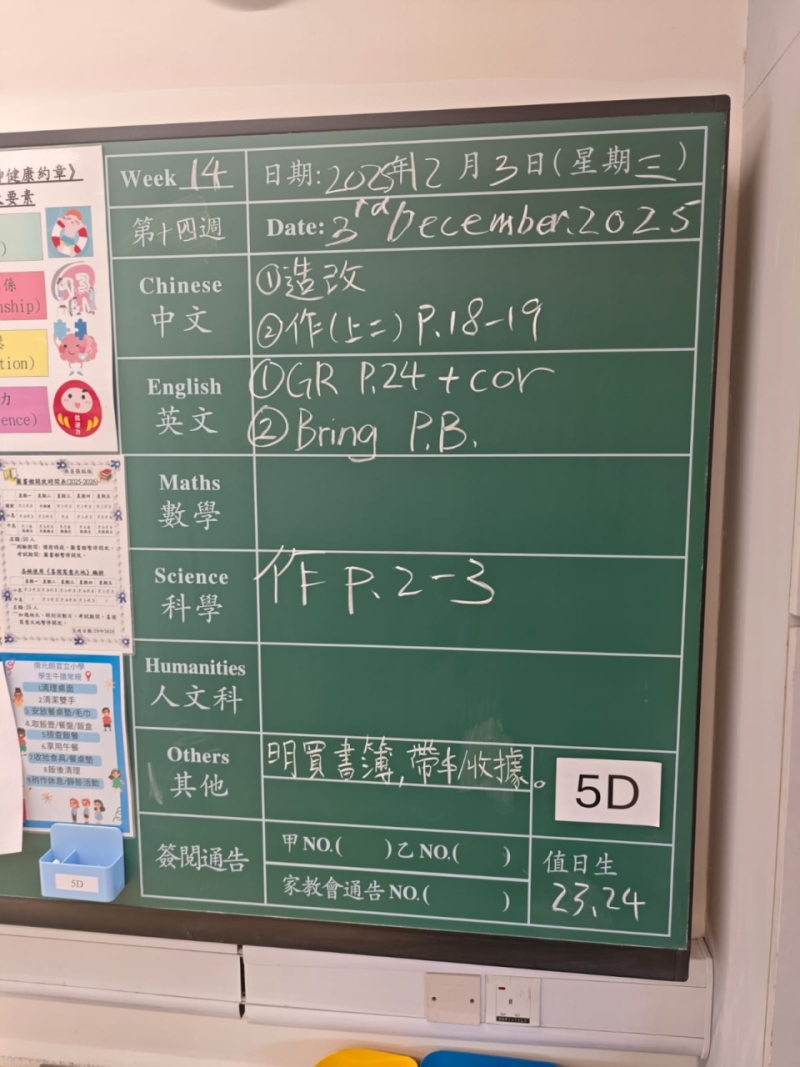 Week 14
日期:2025年12月3日(星期三)
第十四週
Date: 3rd December.2025
Chinese
中文
①造改
②作(上二) P.18-19
English
英文
①GR P.24 + cor
②Bring P.B.
Maths
數學
Science
科學
作 P.2-3
Humanities
人文科
Others
其他
明買書簿,帶$/收據。
5D
簽閱通告
甲NO.( )乙NO.( )
家教會通告NO.( )
值日生
23,24
健康約章》
要素
係
nship)
tion)
力
ence)
圖書館開放時間表(2025-2026)
星期一 星期二 星期三 星期四 星期五
南元朗官立小學
學生午膳常規
1.清理桌面
2.清潔雙手
3.安放餐桌墊/毛巾
4.取飯壺/餐盤/飯盒
5.檢查飯餐
6.享用午餐
7.收拾食具/餐桌墊
8.飯後清理
9.稍作休息/靜態活動
5D